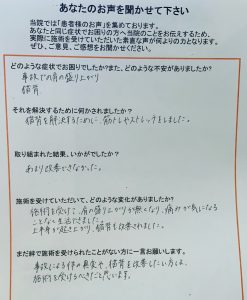 あなたのお声を聞かせて下さい
当院では「患者様のお声」を集めております。
あなたと同じ症状でお困りの方へ当院のことをお伝えするため、
実際に施術を受けていただいた素直な声が何よりの力となります。
ぜひ、ご意見、ご感想をお聞かせください。
どのような症状でお困りでしたか?また、どのような不安がありましたか?
事故での肩の盛り上がり
猫背
それを解決するために何かされましたか?
猫背を解決するために、筋トレやストレッチをしました。
取り組まれた結果、いかがでしたか?
あまり改善できなかった。
施術を受けていただいて、どのような変化がありましたか?
施術を受けて、肩の盛り上がりが無くなり、痛みが気になる
ことなく生活できました。
上半身が起き上がり、猫背も改善されました。
まだ絆で施術を受けられたことがない方に一言お願いします。
事故による体の異変や、猫背を改善したい方は、
施術を受けるべきだと思います。